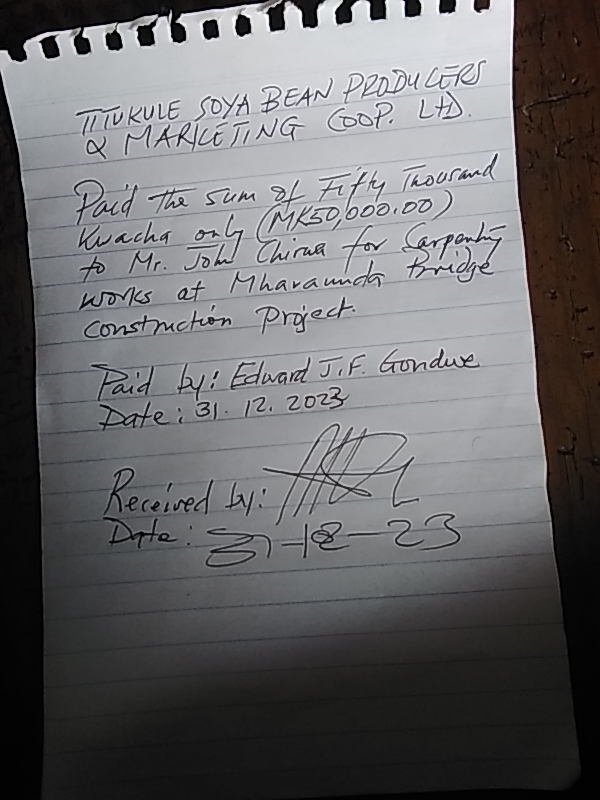 TITUKULE SOYA BEAN PRODUCERS
& MARKETING COOP. LTD.
Paid the sum of Fifty Thousand
Kwacha only (MK50,000.00)
to Mr. John Chirwa for Carpentry
works at Mharaunda Bridge
Construction Project.
Paid by: Edward J.F. Gondwe
Date: 31.12.2023
Received by:
Date: 31-12-23